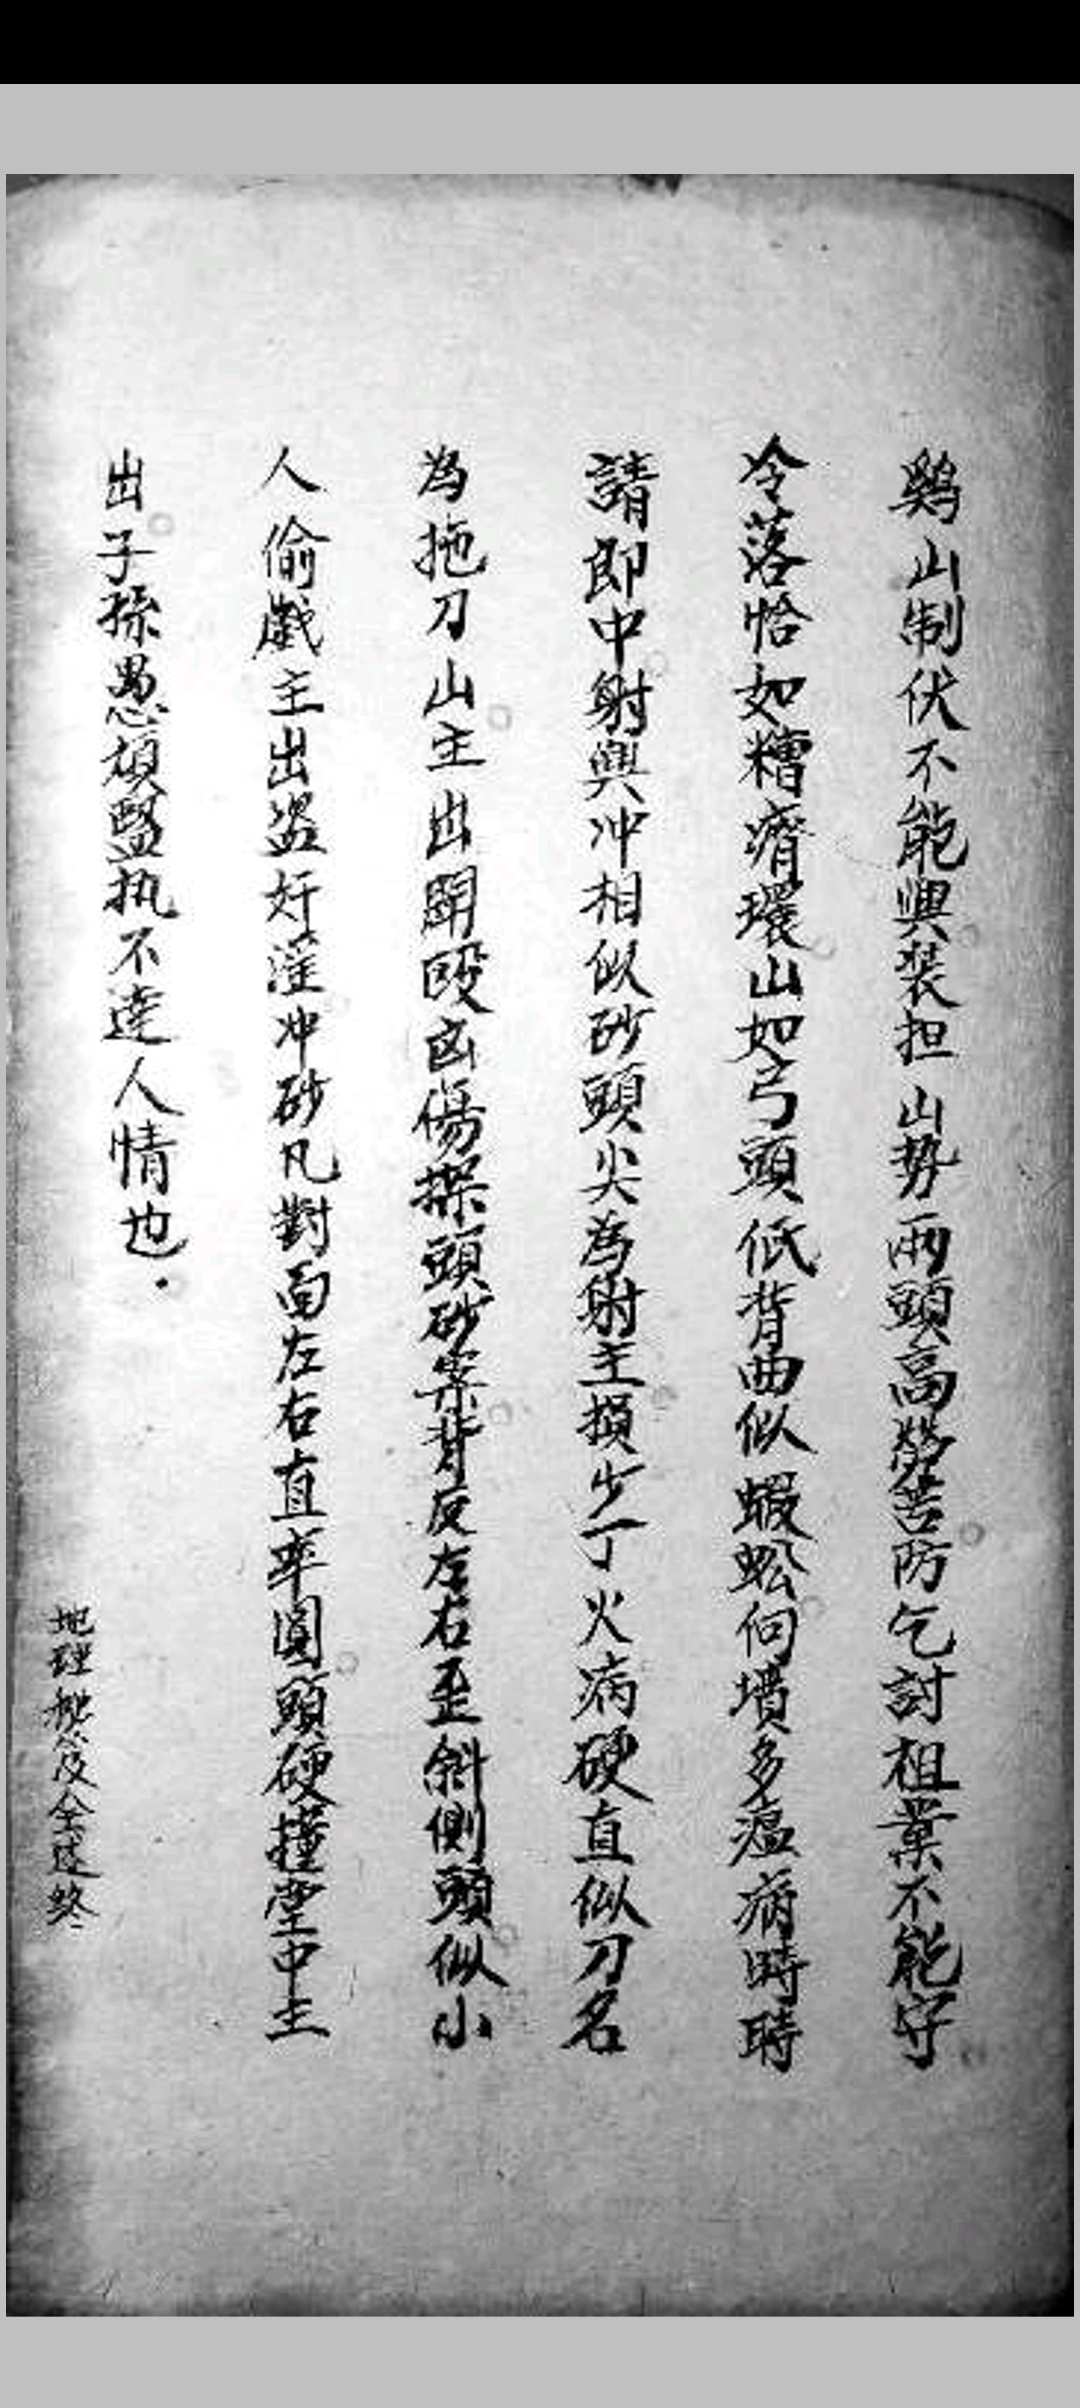 鷄山制伏不能興装担山势兩頭高勞苦防乞討祖業不能守
冷落恰如糟瘠環山如弓頭低背曲似蝦蚣向墳多瘟病時時
請郎中射與冲相似砂頭尖為射主損少丁火病硬直似刀名
為拖刀山主出鬪殴凶傷探頭砂案背反左右歪斜側頭似小
人偷戲主出盗奸淫冲砂凡對面左右直來圓頭硬撞堂中主
出子孫愚頑堅执不達人情也
地理 全 終